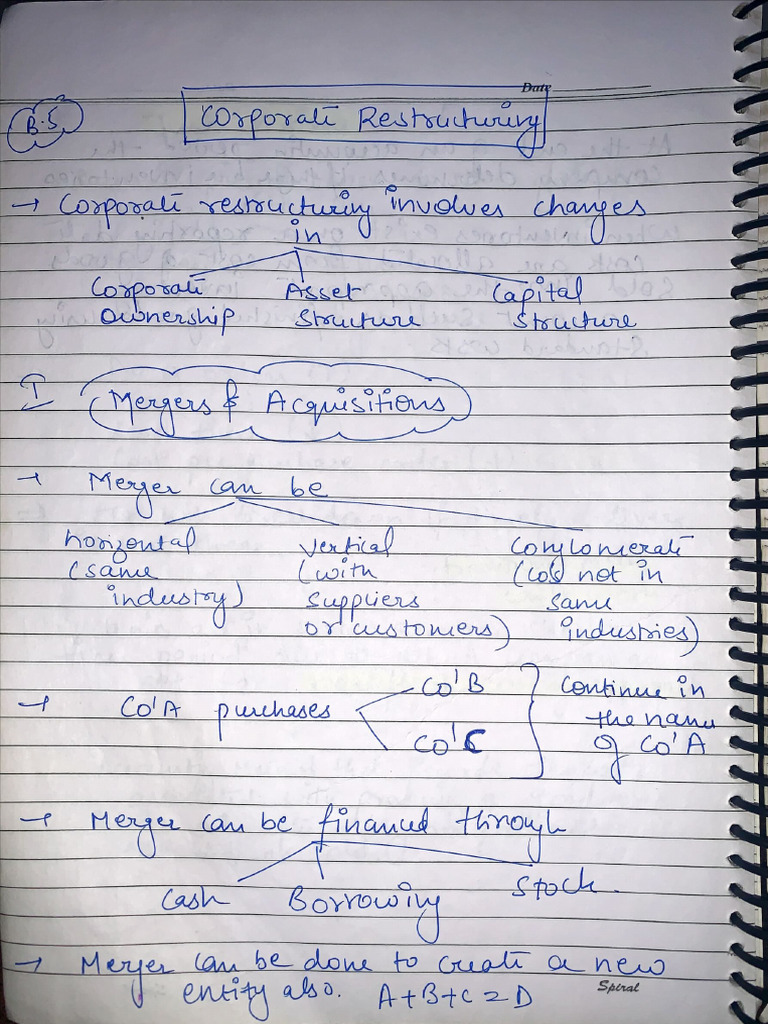 Date
B.5
Corporate Restructuring
→ Corporate restructuring involves changes
in
Corporate Asset Capital
Ownership Structure Structure
I Mergers & Acquisitions
→ Merger can be
horizontal vertical Conglomerate
(same (with (co's not in
industry) suppliers same
or customers) industries)
→ CO'A purchases CO'B CO'C } continue in
the name
of CO'A
→ Merger can be financed through
Cash Borrowing Stock.
→ Merger can be done to create a new
entity also. A+B+C=D
Spiral